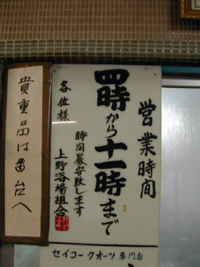 営業時間
四時から十一時まで
時間厳守致します
各位様
上野浴場組合
貴重品は番台へ
セイコークオーツ専門店